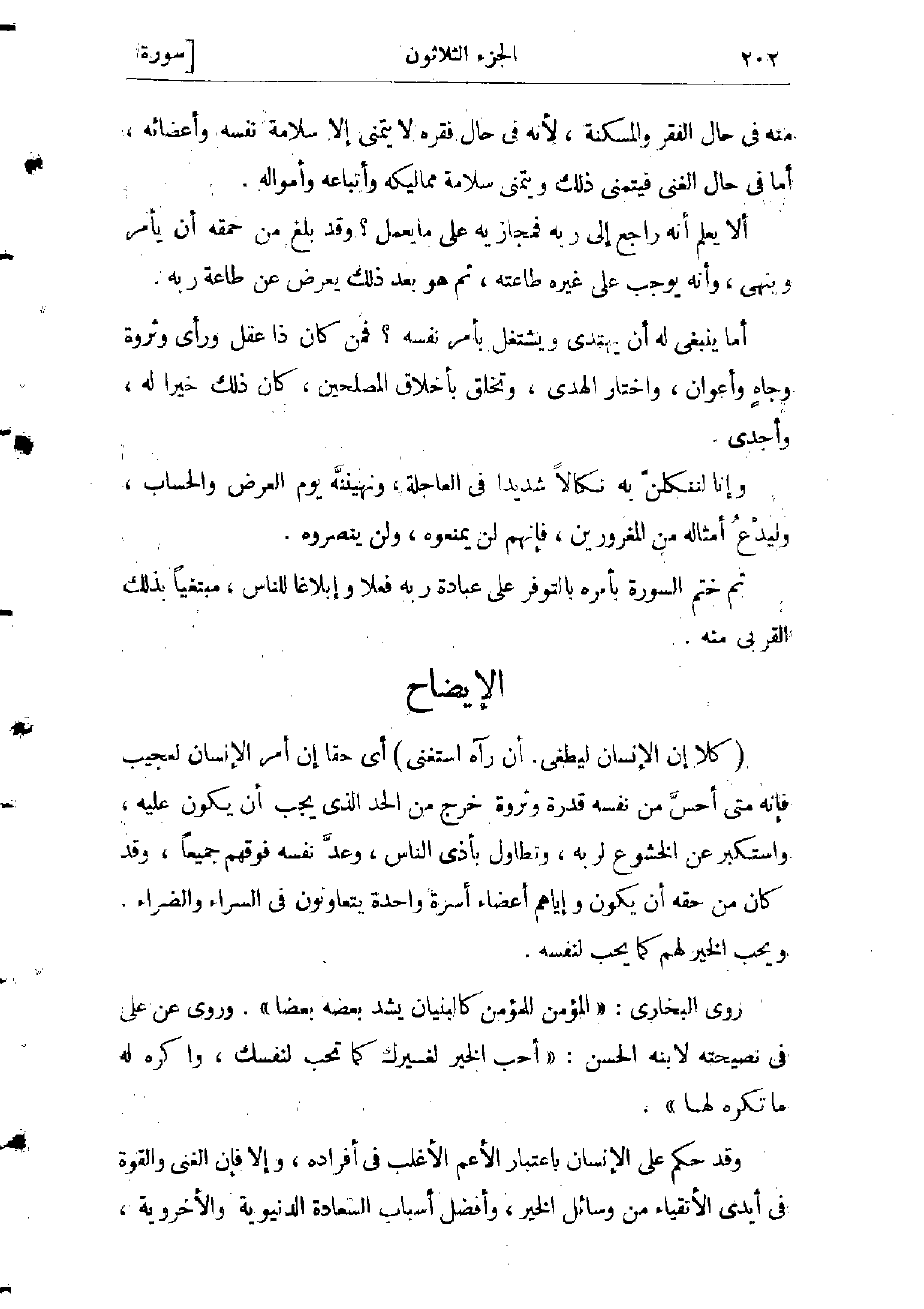 ٢٠٢ الجزء الثلاثون [سورة
منه فى حال الفقر والمسكنة ، لأنه فى حال فقره لا يتمنى إلا سلامة نفسه وأعضائه ،
أما فى حال الغنى فيتمنى ذلك ويتمنى سلامة مماليكه وأتباعه وأمواله .
ألا يعلم أنه راجع إلى ربه فمجازيه على ما يعمل ؟ وقد بلغ من حمقه أن يأمر
وينهى ، وأنه يوجب على غيره طاعته ، ثم هو بعد ذلك يعرض عن طاعة ربه .
أما ينبغى له أن يهتدى ويشتغل بأمر نفسه ؟ فمن كان ذا عقل ورأى وثروة
وجاهٍ وأعوان ، واختار الهدى ، وتخلق بأخلاق المصلحين ، كان ذلك خيرا له ،
وأجدى .
وإنا لننكلنّ به نكالاً شديدا فى العاجلة ، ونهيننَّه يوم العرض والحساب ،
وليدْعُ أمثاله من المغرورين ، فإنهم لن يمنعوه ، ولن ينصروه .
ثم ختم السورة بأمره بالتوفر على عبادة ربه فعلا وإبلاغا للناس ، مبتغياً بذلك
القربى منه .
الإيضاح
( كلا إن الإنسان ليطغى. أن رآه استغنى ) أى حقا إن أمر الإنسان لعجيب
فإنه متى أحسَّ من نفسه قدرة وثروة خرج من الحد الذى يجب أن يكون عليه ،
واستكبر عن الخشوع لربه ، وتطاول بأذى الناس ، وعدَّ نفسه فوقهم جميعاً ، وقد
كان من حقه أن يكون وإياهم أعضاء أسرة واحدة يتعاونون فى السراء والضراء .
ويحب الخير لهم كما يحب لنفسه .
روى البخارى : « المؤمن للمؤمن كالبنيان يشد بعضه بعضا » . وروى عن على
فى نصيحته لابنه الحسن : « أحب الخير لغيرك كما تحب لنفسك ، واكره له
ما تكره لها » .
وقد حكم على الإنسان باعتبار الأعم الأغلب فى أفراده ، وإلا فإن الغنى والقوة
فى أيدى الأتقياء من وسائل الخير ، وأفضل أسباب السعادة الدنيوية والأخروية ،